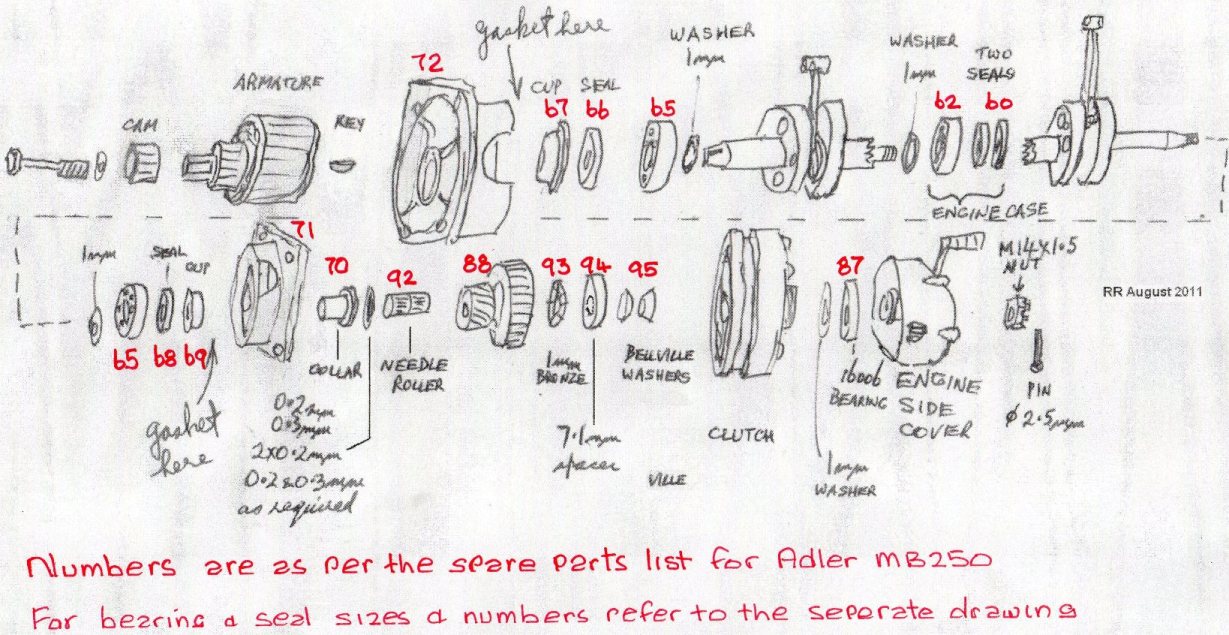 gasket here
WASHER
1mm
WASHER
1mm
TWO
SEALS
72
ARMATURE
CUP
SEAL
67
66
65
62
60
CAM
KEY
ENGINE CASE
71
1mm
SEAL
CUP
70
92
88
93
94
95
87
M14X1.5
NUT
RR August 2011
65
68
69
COLLAR
NEEDLE
ROLLER
1mm
BRONZE
BELLVILLE
WASHERS
16006
BEARING
ENGINE
SIDE
COVER
PIN
φ2.5mm
gasket
here
0.2mm
0.3mm
2X0.2mm
0.2&0.3mm
as required
7.1mm
spacer
CLUTCH
VILLE
1mm
WASHER
Numbers are as per the spare parts list for Adler MB250
For bearing & seal sizes & numbers refer to the seperate drawing